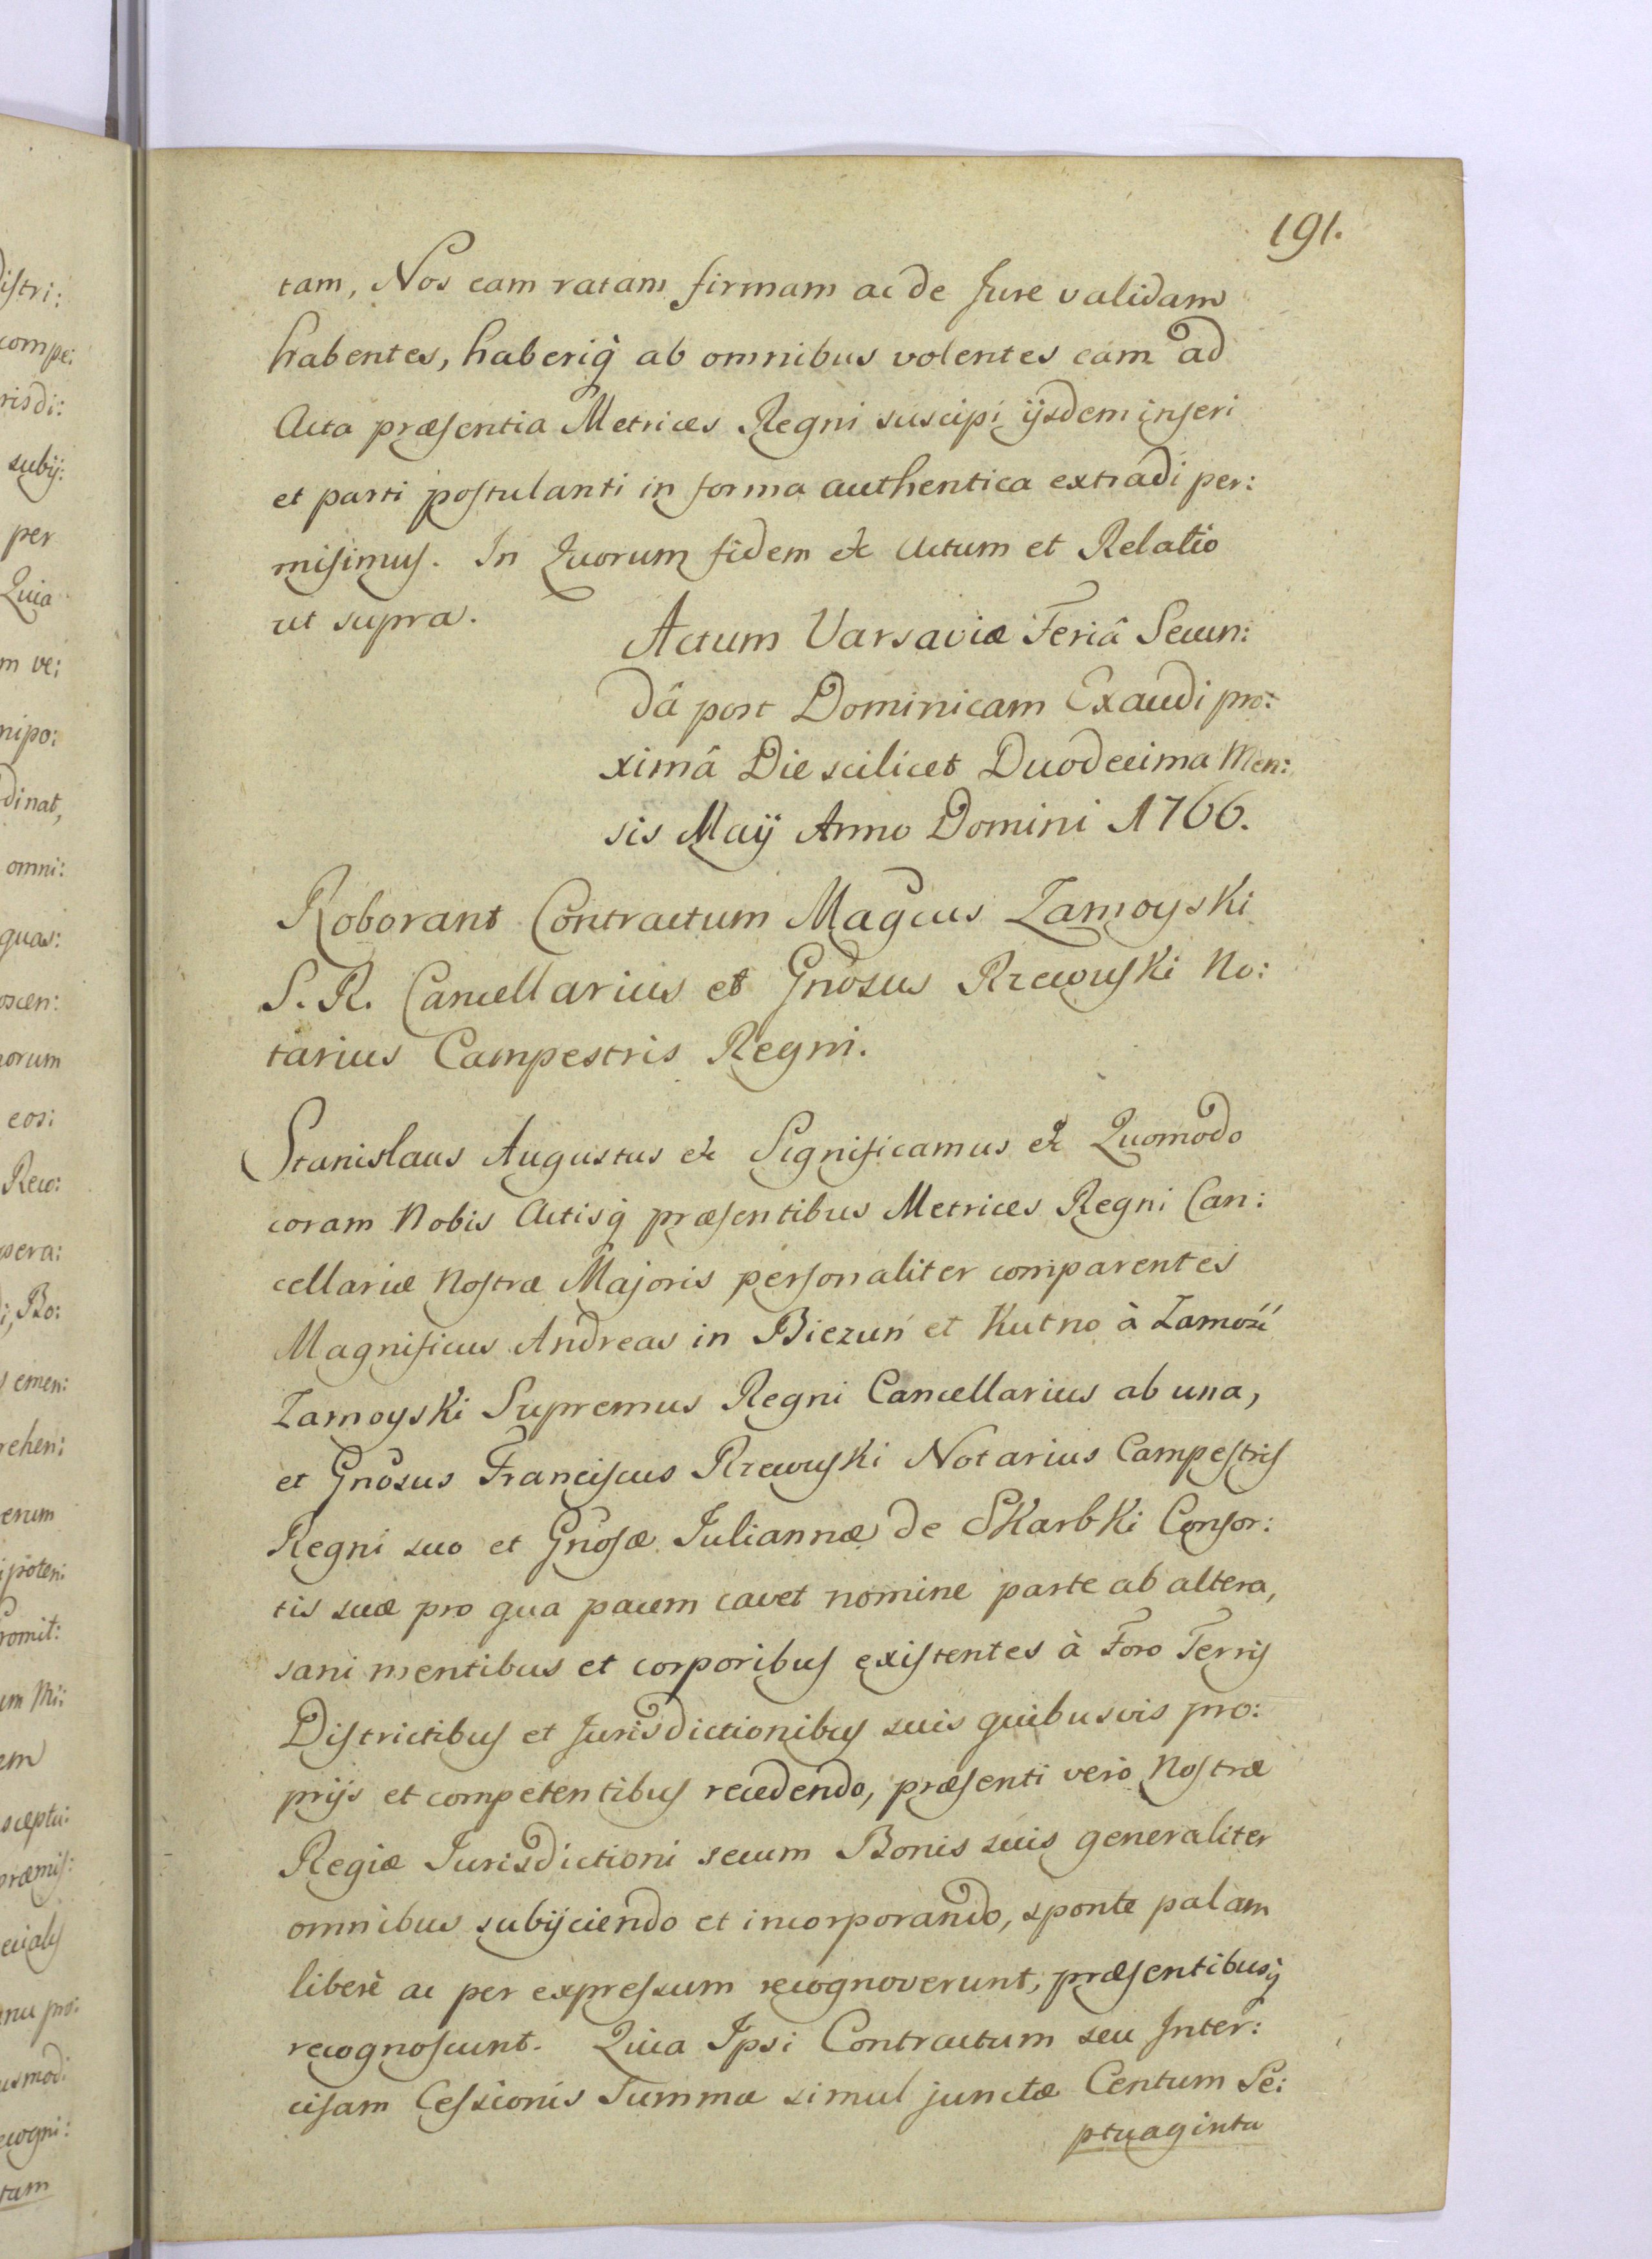 191.
tam, Nos eam ratam firmam ac de Jure validam
habentes, haberiq̀ ab omnibus volentes eam ad
Acta præsentia Metrices Regni suscipi ijsdem inseri
et parti postulanti in forma authentica extradi per:
misimus. In Quorum fidem &c Actum et Relatio
ut supra.
Actum Varsaviæ Feriâ Secun:
dâ post Dominicam Exaudi pro:
ximâ Die scilicet Duodecima Men:
sis Maÿ Anno Domini 1766.
Roborant Contractum Magcus Zamoyski
S. R. Cancellarius et Gnosus Rzewuski No:
tarius Campestris Regni.
Stanislaus Augustus &c Significamus &c Quomodo
coram Nobis Actisq̀ præsentibus Metrices Regni Can:
cellariæ Nostræ Majoris personaliter comparentes
Magnificus Andreas in Biezuń et Kutno à Zamość
Zamoyski Supremus Regni Cancellarius ab una,
et Gnosus Franciscus Rzewuski Notarius Campestris
Regni suo et Gnosæ Juliannæ de Skarbki Consor:
tis suæ pro qua pacem cavet nomine parte ab altera,
sani mentibus et corporibus existentes à Foro Terris
Districtibus et Jurisdictionibus suis quibusvis pro:
prijs et competentibus recedendo, præsenti verò Nostræ
Regiæ Jurisdictioni secum Bonis suis generaliter
omnibus subijciendo et incorporando, sponte palam
liberè ac per expressum recognoverunt, præsentibusq̀
recognoscunt. Quia Ipsi Contractum seu Inter:
cisam Cessionis Summæ simul junctæ Centum Se:
ptuaginta